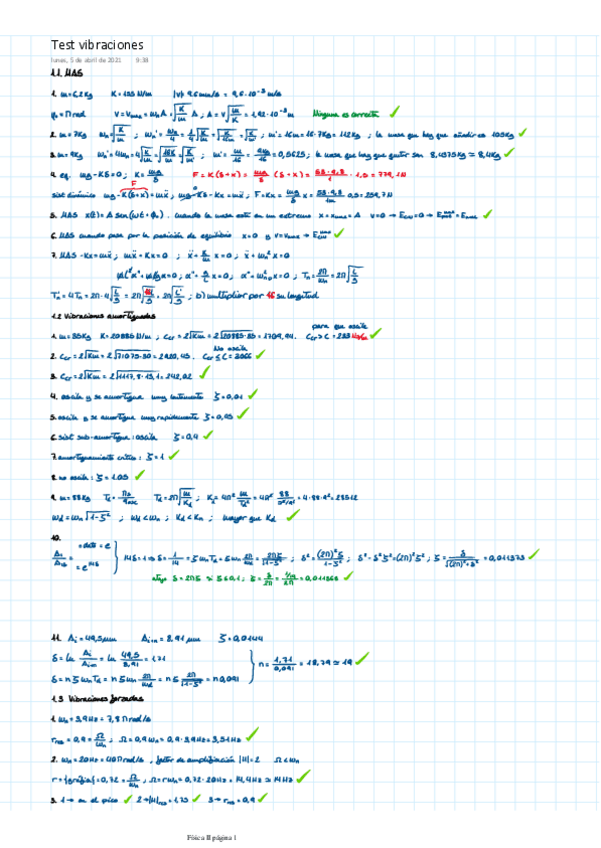 Test vibraciones
lunes, 5 de abril de 2021 9:38
1.1. MAS
1. m=6,2Kg K=193 N/m |v|=9,6mm/s = 9,6·10⁻³ m/s
φ₀=π rad V=Vmax=ωn A √K/m A; A=V√m/K = Ninguna es correcta
2. m=7Kg ωn=√K/m; ωn'=ωn/4=1/4√K/m=√K/16m=√K/m'; m'=16m=16·7Kg=112Kg; la masa que hay que añadir es 105Kg
3. m=9Kg ωn'=4ωn=4√K/m=√16K/m=√K/m'; m'=m/16=9Kg/16=0,5625; la masa que hay que quitar son 8,4375Kg ≈ 8,4Kg
4. eq. mg-Kδ=0; K=mg/δ F=K(δ+x)=mg/δ (δ+x)=
sist dinámico mg-K(δ+x)=mẍ; mg-Kδ-Kx=mẍ; F=Kx=mg/δ x=
5. MAS x(t)=A sen(ωt+φ₀). Cuando la masa está en un extremo x=xmax=A v=0→Ecin=0→
6. MAS cuando pasa por la posición de equilibrio x=0 y v=vmax→
7. MAS -Kx=mẍ; mẍ+Kx=0; ẍ+K/m x=0; ẍ+ωn²x=0
Tn'=4Tn=2π·4√L/g=2π√16L/g=2π√L'/g; b) multiplicar por 16 su longitud
1.2 Vibraciones amortiguadas
para que oscile
1. m=35Kg K=20885N/m; Ccr=2√Km=2√20885·35=1709,94. Ccr>C=
No oscila
2. Ccr=2√Km=2√71075·30=2920,45. Ccr≤C=
3. Ccr=2√Km=2√1117,8·13,1=242,02
4. oscila y se amortigua muy lentamente ζ=0,01
5. oscila y se amortigua muy rapidamente ζ=0,95
6. sist sub-amortigua: oscila ζ=0,4
7. amortiguamiento crítico: ζ=1
8. no oscila: ζ=1.05
9. m=88Kg Td=2π√m/Kd; Kd=4π² m/Td²=4π²
ωd=ωn√1-ζ²; ωd<ωn; Kd<Kn; mayor que Kd
10.
14δ=1→δ=1/14=ζωnTd=ζωn 2π/ωd=2πζ/√1-ζ²; δ²=(2π)²ζ²/1-ζ²; δ²-δ²ζ²=(2π)²ζ²; ζ=δ/√(2π)²+δ²=0,011373
δ=2πζ si ζ≤0,1; ζ=δ/2π=1/14/2π=0,011368
11. Ai=49,5mm Ai+n=8,91mm ζ=0,0144
δ=ln Ai/Ai+n=ln 49,5/8,91=1,71
δ=nζωnTd=nζωn 2π/ωd=nζ 2π/√1-ζ²=n0,091
n=1,71/0,091=18,79≈19
1.3 Vibraciones forzadas
1. ωn=3,9Hz=7,8π rad/s
rres=0,9=Ω/ωn; Ω=0,9ωn=0,9·3,9Hz=3,51Hz
2. ωn=20Hz=40π rad/s, factor de amplificación |H|=2 Ω<ωn
r=(grafica)=0,72=Ω/ωn; Ω=rωn=0,72·20Hz=14,4Hz≈14Hz
3. 1→ en el pico 2→|H|res=1,73 3→rres=0,9
Física II página 1